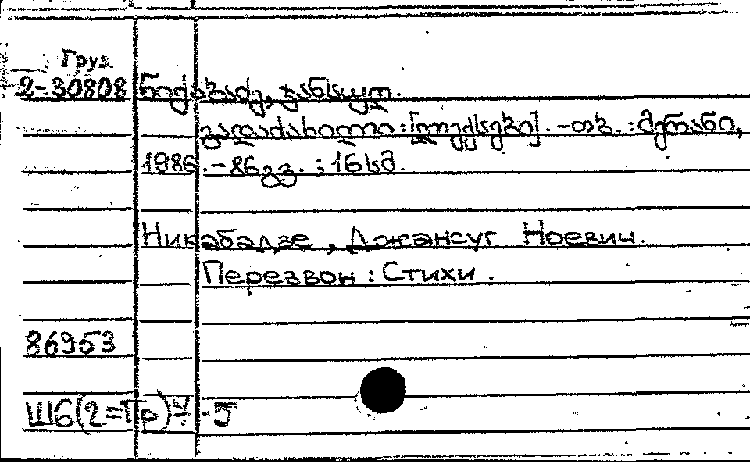 Груз
2-30808 ნიქაბაძე, ჯანსუღ.
გადაძახილი : [ლექსები]. -თბ. : მერანი,
1986. - 86გვ. ; 16სმ.
Никабадзе, Джансуг Ноевич.
Перезвон : Стихи.
86953
Ш6(2=Гр)7-5